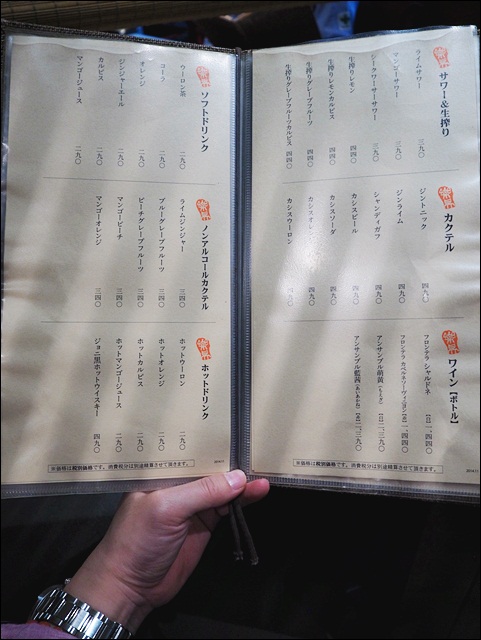 サワー＆生搾り
ライムサワー 三九〇
マンゴーサワー 三九〇
シークワーサーサワー 三九〇
生搾りレモン 四四〇
生搾りレモンカルピス 四四〇
生搾りグレープフルーツ 四四〇
生搾りグレープフルーツカルピス 四四〇
カクテル
ジントニック 四九〇
ジンライム 四九〇
シャンディガフ 四九〇
カシスビール 四九〇
カシスソーダ 四九〇
カシスオレンジ 四九〇
カシスウーロン 四九〇
ワイン【ボトル】
フロンテラ シャルドネ 【白】一、四四〇
フロンテラ カベルネソーヴィニヨン【赤】一、四四〇
アンサンブル萌黄（もえぎ）【白】二、三九〇
アンサンブル藍茜（あいあかね）【赤】二、三九〇
※価格は税別価格です。消費税分は別途精算させて頂きます。
ソフトドリンク
ウーロン茶 二九〇
コーラ 二九〇
オレンジ 二九〇
ジンジャーエール 二九〇
カルピス 二九〇
マンゴージュース 二九〇
ノンアルコールカクテル
ライムジンジャー 三四〇
ブルーグレープフルーツ 三四〇
ピーチグレープフルーツ 三四〇
マンゴーピーチ 三四〇
マンゴーオレンジ 三四〇
ホットドリンク
ホットウーロン 二九〇
ホットオレンジ 二九〇
ホットカルピス 二九〇
ホットマンゴージュース 二九〇
ジョニ黒ホットウイスキー 四九〇
※価格は税別価格です。消費税分は別途精算させて頂きます。